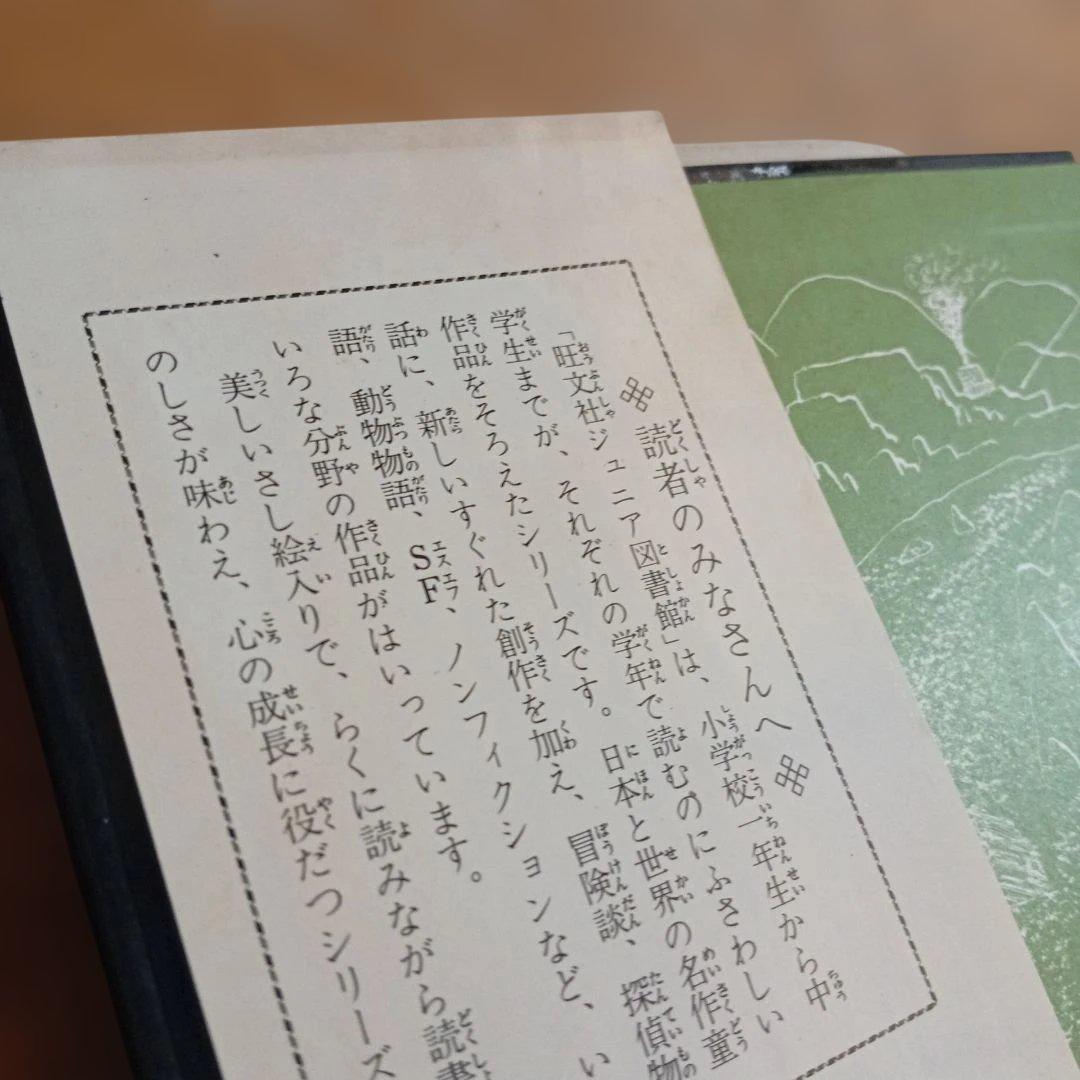 読者のみなさんへ
「旺文社ジュニア図書館」は、小学校一年生から中
学生までが、それぞれの学年で読むのにふさわしい
作品をそろえたシリーズです。日本と世界の名作童
話に、新しいすぐれた創作を加え、冒険談、探偵物
語、動物物語、SF、ノンフィクションなど、い
いろな分野の作品がはいっています。
美しいさし絵入りで、らくに読みながら読書
のしさが味わえ、心の成長に役だつシリーズ